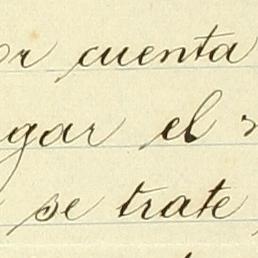 or cuenta
gar el
se trate